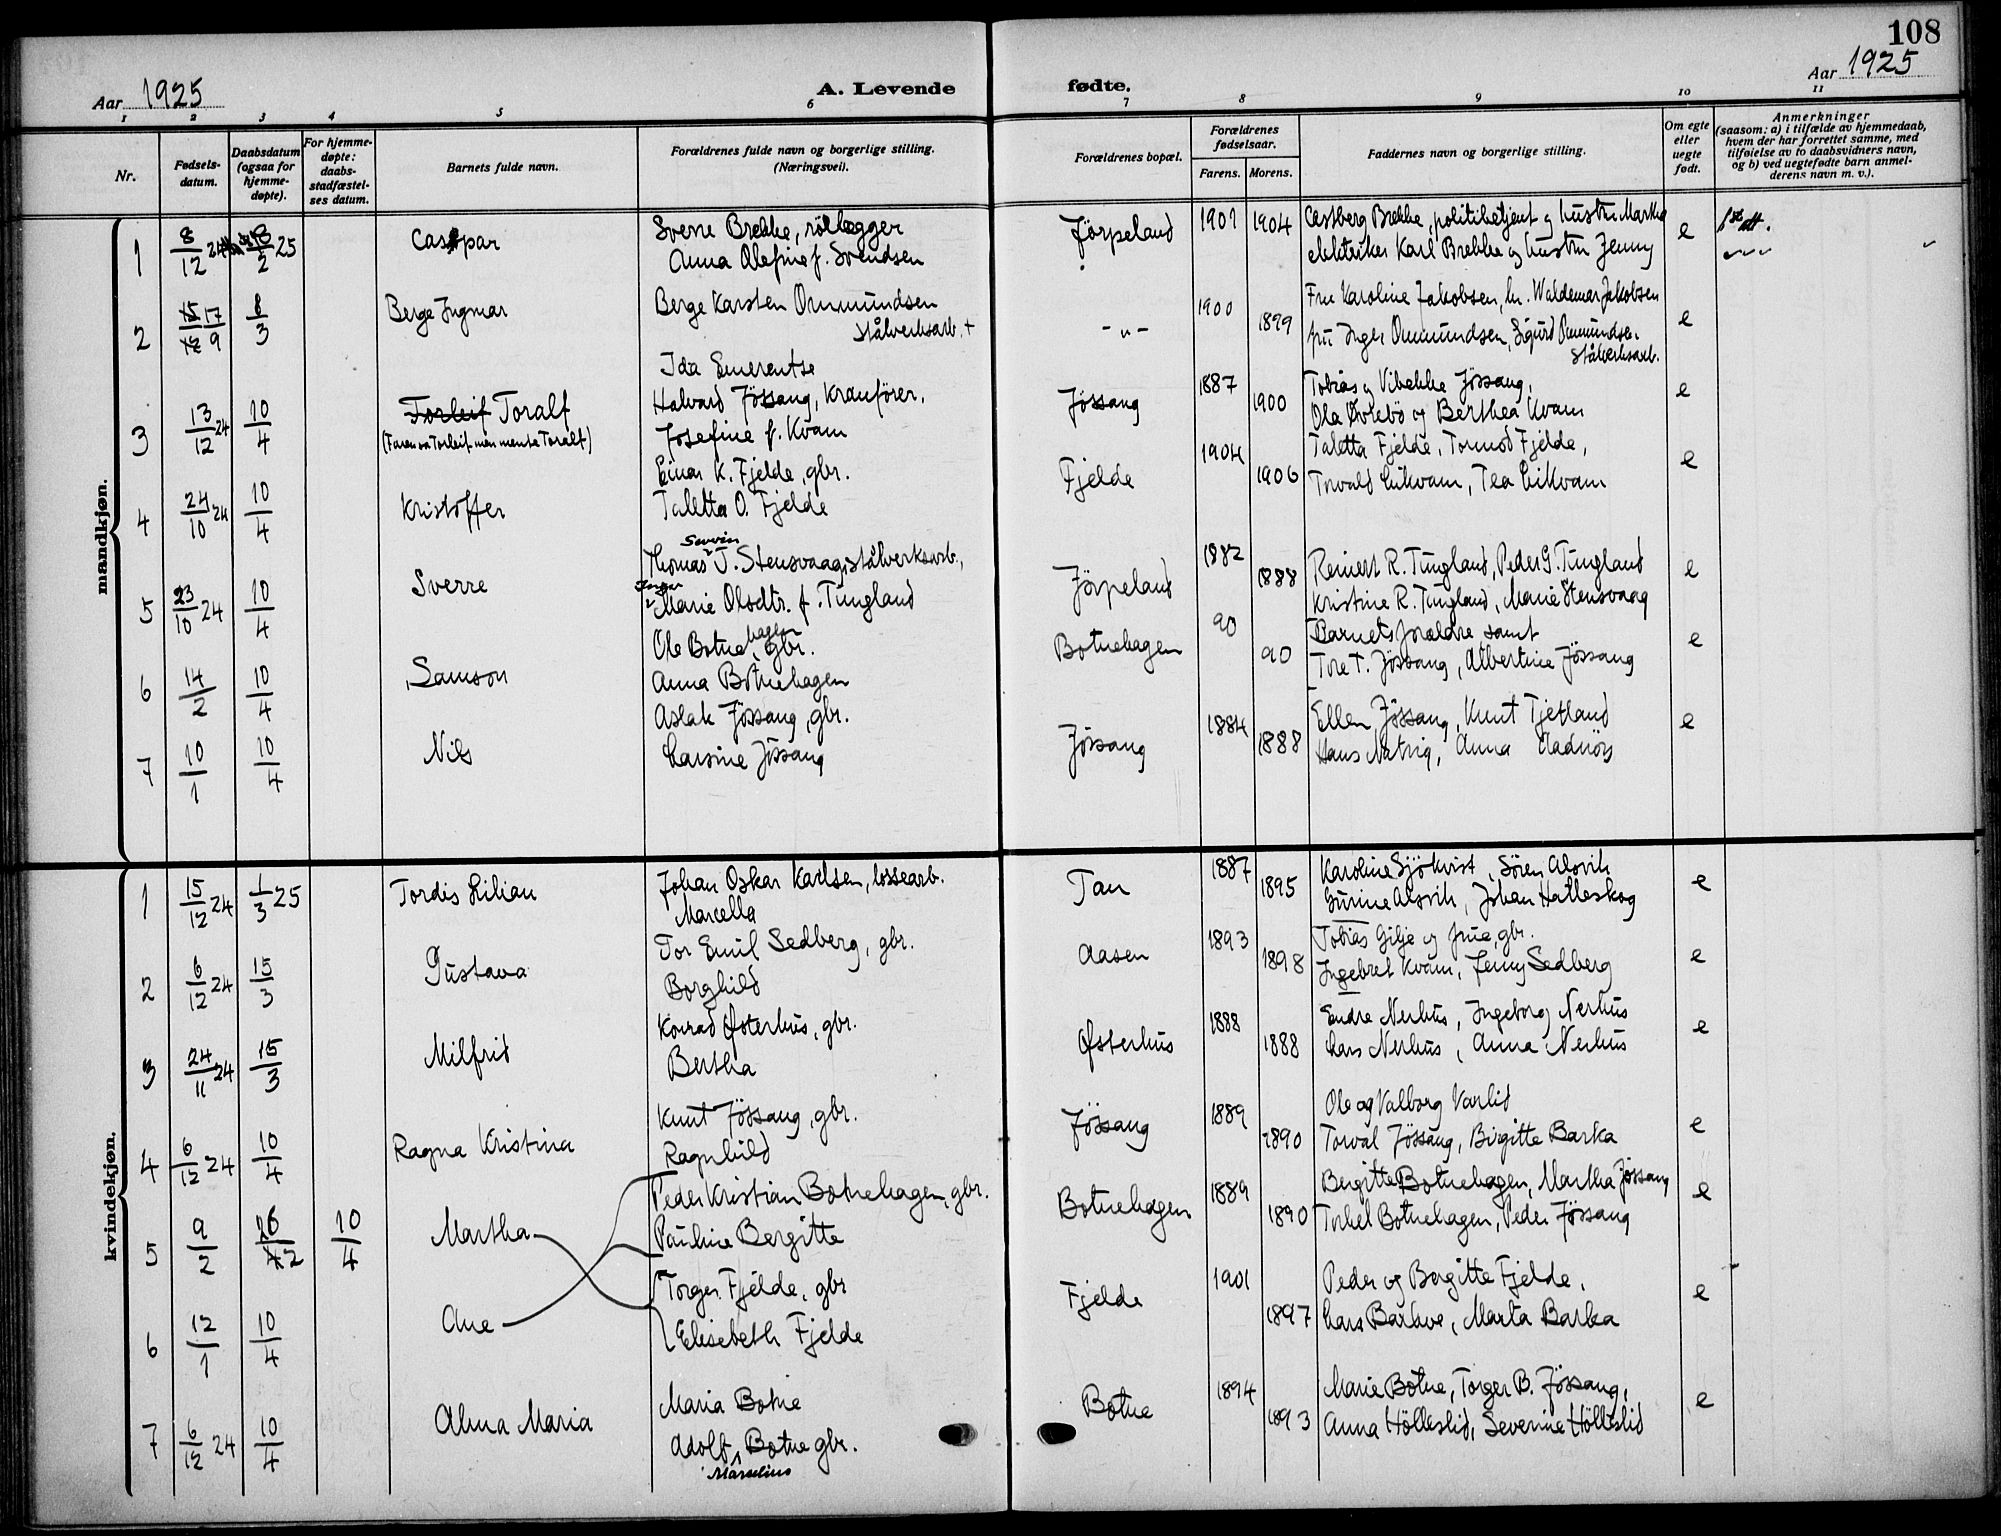 108
Aar 1925
A. Levende fødte.
Aar 1925
1 2 3 4 5 6 7 8 9 10 11
Nr.
Fødsels-
datum.
Daabsdatum
(ogsaa for
hjemme-
døpte).
For hjemme-
døpte:
daabs-
stadfæstel-
ses datum.
Barnets fulde navn.
Forældrenes fulde navn og borgerlige stilling.
(Næringsvei).
Forældrenes bopæl.
Forældrenes
fødselsaar.
Farens. Morens.
Faddernes navn og borgerlige stilling.
Om egte
eller
uegte
født.
Anmerkninger
(saasom: a) i tilfælde av hjemmedaab,
hvem der har forrettet samme, med
tilføielse av to daabsvidners navn,
og b) ved uegtefødte barn anmel-
derens navn m. v.).
mandkjøn.
1 8/12 24 8/2 25 Caspar
Sverre Brekke, rörlægger
Anna Olefine f. Svendsen
Jörpeland 1901 1904
Castberg Brekke, politibetjent og hustru Martha
elektriker Karl Brekke og hustru Jenny
e
2 15 17/12 9 8/3 Berge Ingmar
Berge Karsten Ommundsen
Stålverksarb. +
Ida Emerentse
-"- 1900 1899
Fru Karoline Jakobsen, hr. Waldemar Jakobsen
fru Inger Ommundsen, Sigurd Ommundsen
Stålverksarb.
e
3 13/12 24 10/4 Torleif Toralf
(Faren sa Torleif men mente Toralf)
Halvard Jössang, Kranförer,
Josefine f. Kvam
Jössang 1887 1900
Tobias og Vibekke Jössang,
Ola Øvrebö og Berthea Kvam
e
4 24/10 24 10/4 Kristoffer
Einar K. Fjelde, gbr.
Taletta O. Fjelde
Fjelde 1904 1906
Taletta Fjelde, Tormod Fjelde,
Torvald Eikvam, Tea Eikvam
e
5 23/10 24 10/4 Sverre
Sevrin
Thomas J. Stensvaag, stålverksarb.,
Inger
Marie Olsdtr. f. Tungland
Jörpeland 1882 1888
Reinert R. Tungland, Peder G. Tungland
Kristine R. Tungland, Marie Stensvaag
e
6 14/2 10/4 Samson
Ole Botnehagen gbr.
Anna Botnehagen
Botnehagen 90 90
Barnets forældre samt
Tore T. Jössang, Albertine Jössang
e
7 10/1 10/4 Nils
Aslak Jössang, gbr.
Larsine Jössang
Jössang 1884 1888
Ellen Jössang, Knut Tjetland
Hans Natvig, Anna Aadnöy
e
kvindekjøn.
1 15/12 24 1/3 25 Tordis Lilian
Johan Oskar Karlsen, lossearb.
Marcella
Tau 1887 1895
Karoline Sjökvist, Sören Alsvik
Gurine Alsvik, Johan Hatleskog
e
2 6/12 24 15/3 Gustava
Tor Emil Sedberg, gbr.
Borghild
Aasen 1893 1898
Tobias Gilje og frue, gbr.
Ingebret Kvam, Jenny Sedberg
e
3 24/11 24 15/3 Milfrid
Konrad Østerhus, gbr.
Bertha
Østerhus 1888 1888
Endre Nerhus, Ingeborg Nerhus
Lars Nerhus, Anna Nerhus
e
4 6/12 24 10/4 Ragna Kristina
Knut Jössang, gbr.
Ragnhild
Jössang 1889 1890
Ole og Valborg Varlid
Torval Jössang, Birgitte Barka
e
5 9/2 16/2 10/4 Martha
Peder Kristian Botnehagen, gbr.
Pauline Bergitte
Botnehagen 1889 1890
Bergitte Botnehagen, Martha Jössang
Torkel Botnehagen, Peder Jössang
e
6 12/1 10/4 Ane
Torger Fjelde, gbr
Elisebeth Fjelde
Fjelde 1901 1897
Peder og Bergitte Fjelde,
Lars Barkve, Marta Barka
e
7 6/12 24 10/4 Alma Maria
Maria Botne
Adolf Botne gbr.
Marselius
Botne 1894 1893
Marie Botne, Torger B. Jössang,
Anna Hölleslid, Severine Hölleslid
e